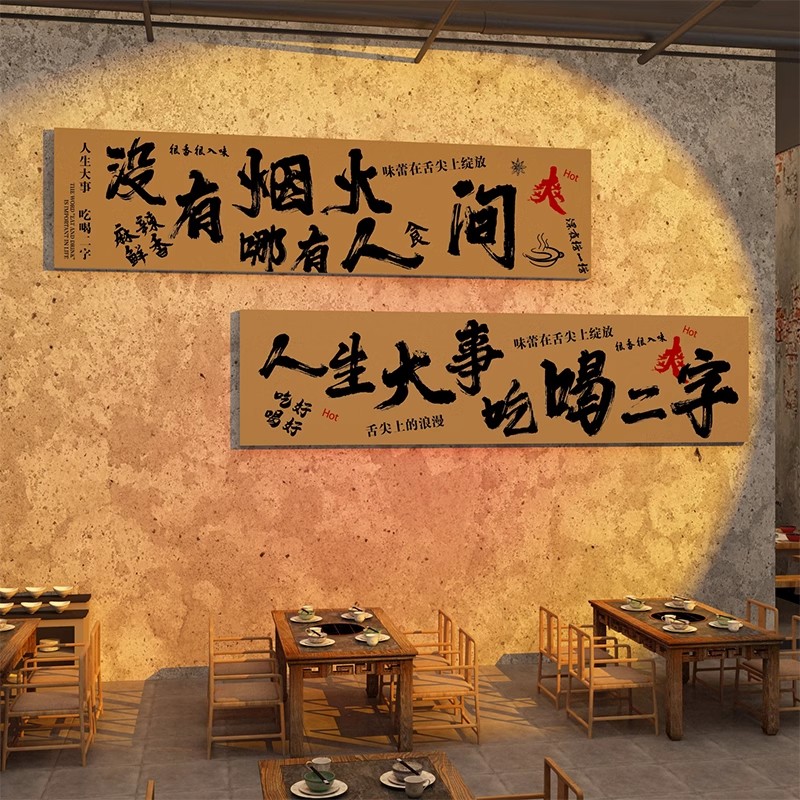 人生大事 吃喝二字
THE WORD "EAT AND DRINK"
IS IMPORTANT IN LIFE
很香很入味
味蕾在舌尖上绽放
没有烟火
哪有人间
食
麻辣鲜香
爽
Hot
人生大事
吃喝二字
味蕾在舌尖上绽放
很香很入味
爽
Hot
吃好
喝好
Hot
舌尖上的浪漫